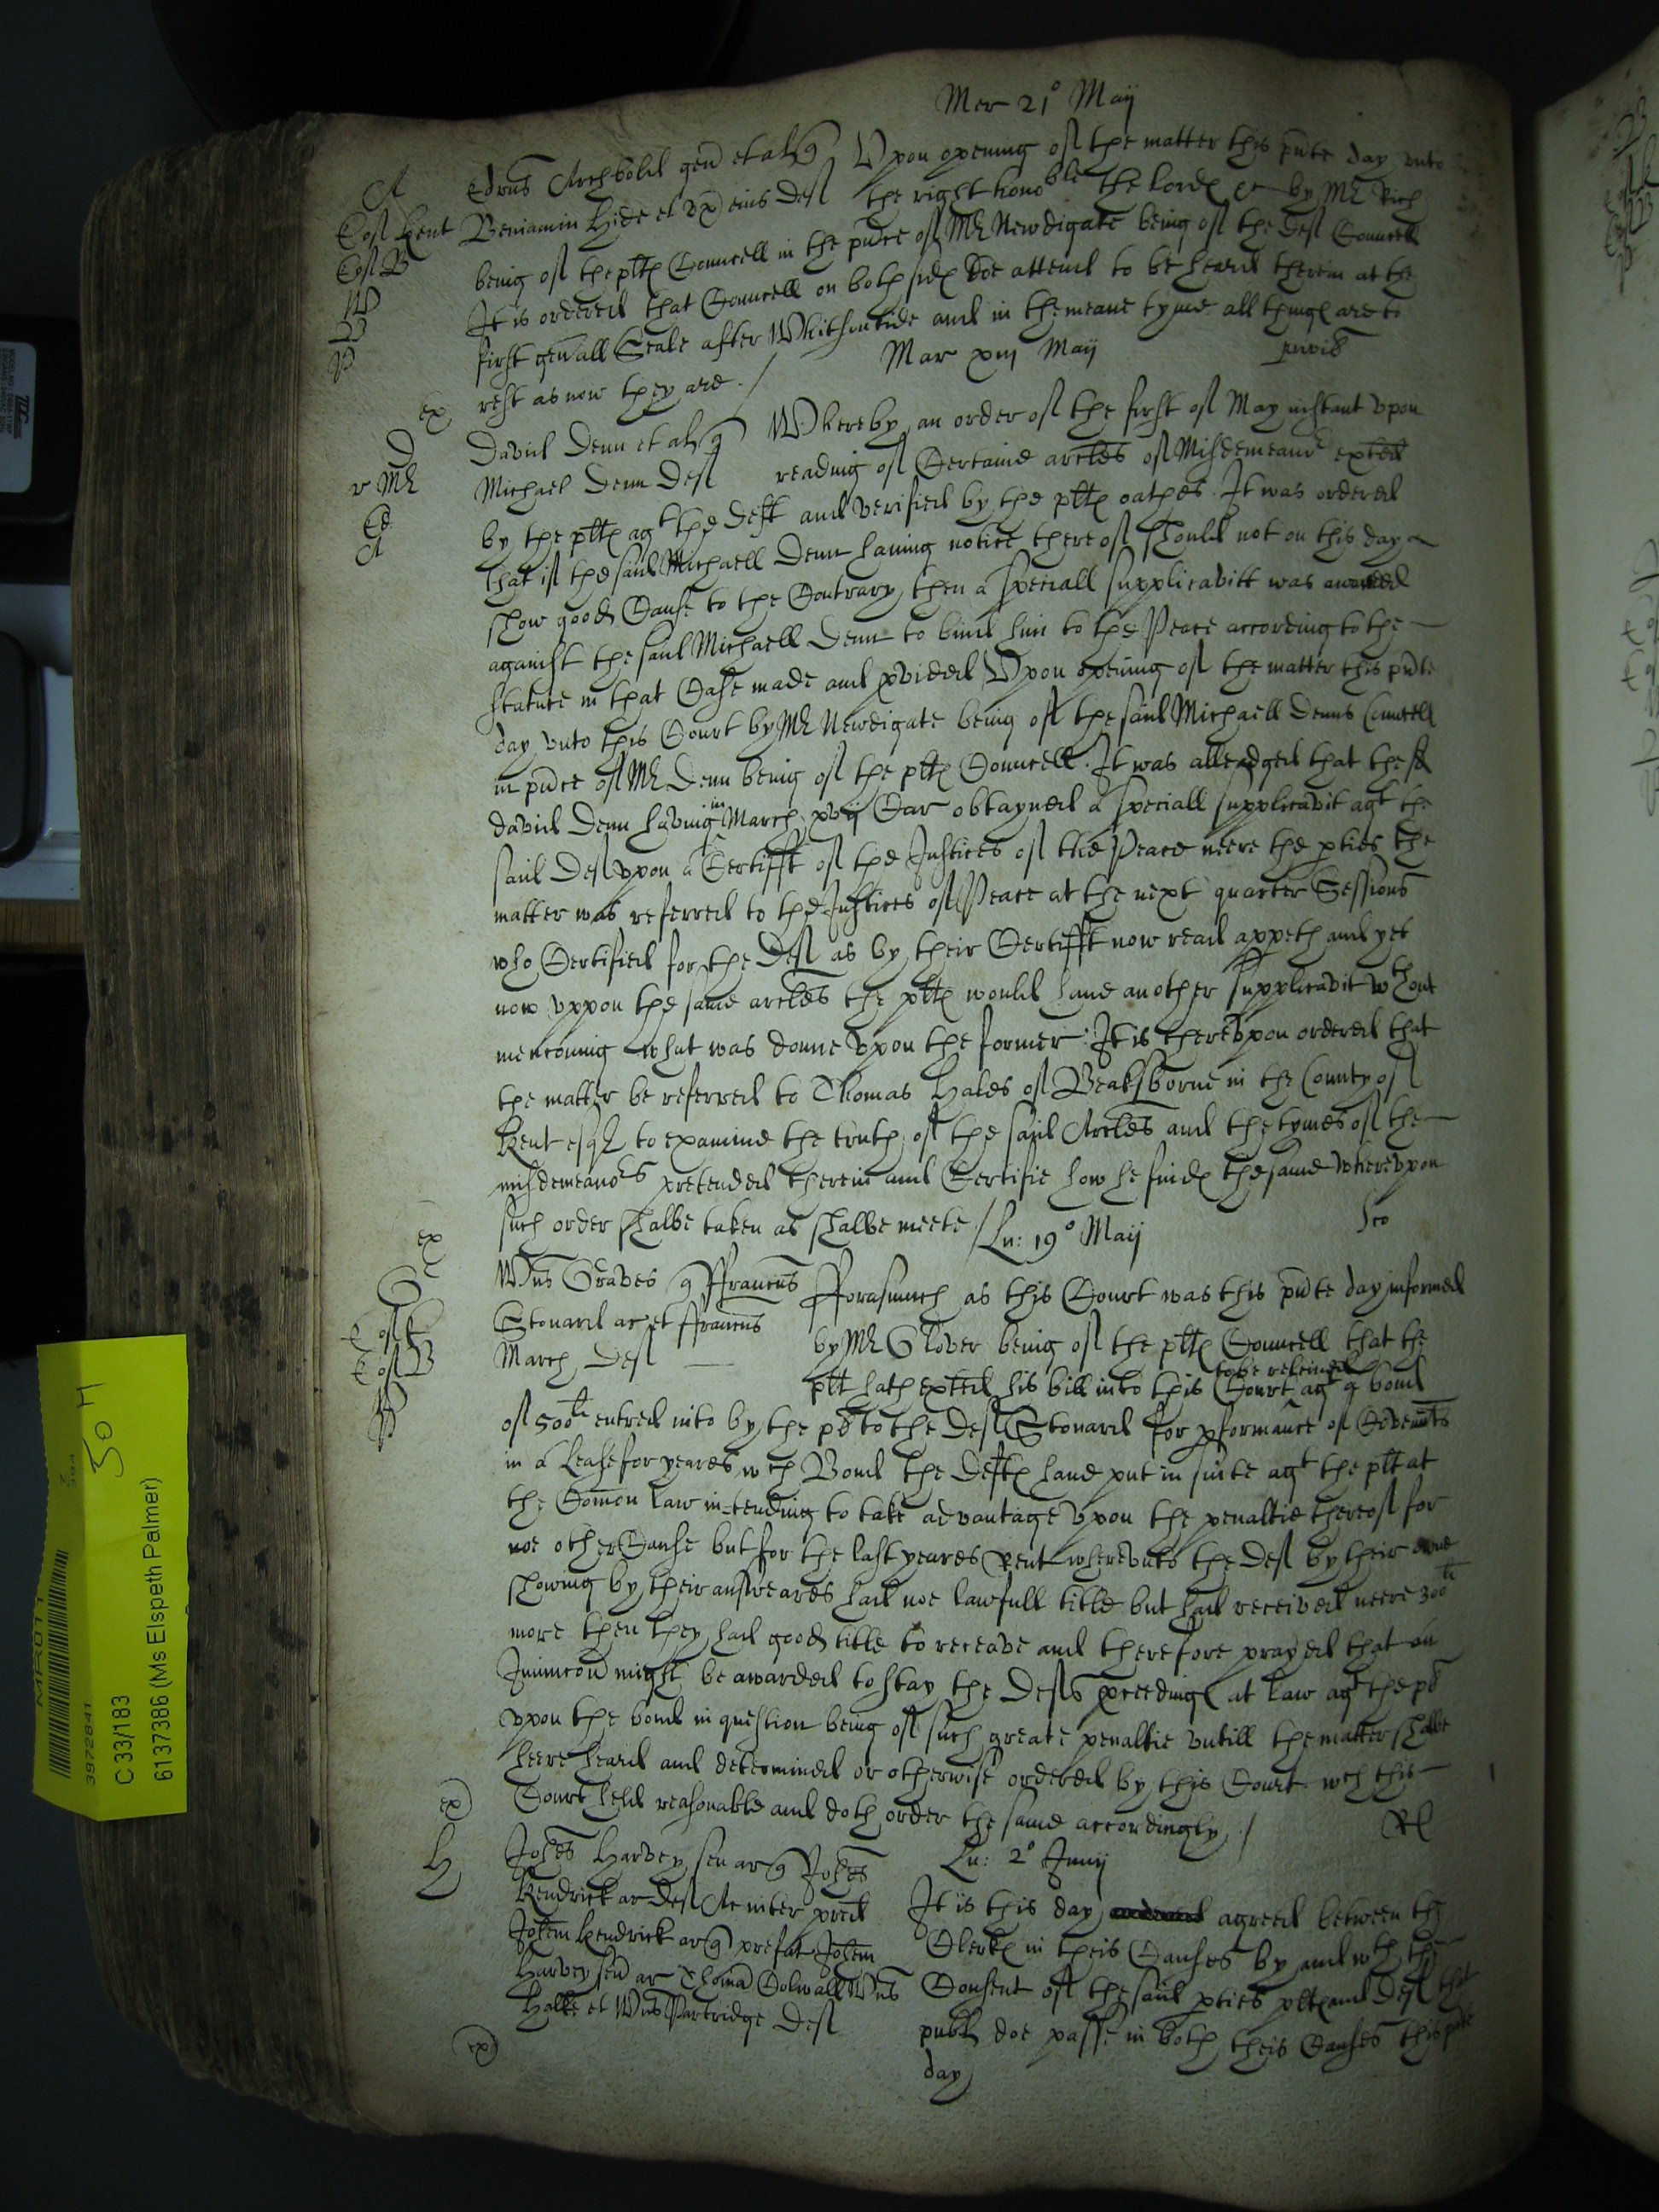 Mer 21° Maij
A
Edrus Archbold gen et al q Upon opening of the matter this pnte day unto
Cof Kent Beniamin Hide et ux eius def the right honoble the Lord &c by Mr Rich
Cof B being of the plts Councell in the pnce of Mr Newdigate being of the def Councell
W It is ordered that Councell on both sides doe attend to be heard therein at the
B first genall Seale after Whitsontide and in the meane tyme all things are to
P rest as now they are ./
ex
Mar xiij Maij
D David Denn et al q Whereby an order of the first of May instant upon
r Mr Michael Denn def reading of Certaine arcles of Misdemeanr exted
Ed by the plts agt the deft and verified by the plts oathes. It was ordered
A that if the said Michaell Denn having notice thereof should not on this day
show good Cause to the Contrary then a speciall supplicavitt was awarded
against the said Michaell Denn to bind him to the Peace according to the
statute in that Case made and pvided Upon opening of the matter this pnte
day unto this Court by Mr Newdigate being of the said Michaell Denns Councell
in pnce of Mr Denn being of the plts Councell. It was alleadged that the sd
David Denn having in March xvij Car obtayned a speciall supplicavit agt the
said Def upon a Certifft of the Justices of the Peace neere the pties the
matter was referred to the Justices of Peace at the next quarter Sessions
who Certified for the Def as by their Certifft now read appeth and yet
now uppon the same arcles the plts would have another supplicavit wthout
menconing what was donne upon the former: It is thereupon ordered that
the matter be referred to Thomas Hales of Beaksborne in the County of
Kent esqr to examine the truth of the said Arcles and the tymes of the
misdemeanors pretended therein and Certifie how he finds the same whereupon
such order shalbe taken as shalbe meete ./
ex
Lu: 19° Maij
G Wms Graves q ffrancus fforasmuch as this Court was this pnte day informed
Stonard ar et ffrancus by Mr Glover being of the plts Councell that the
March def plt hath exted his bill into this Court to be releived agt a bond
of 500li entred into by the pl to the Def Stonard for pformance of Covenants
in a Lease for yeares wch Bond the Defts have put in suite agt the plt at
the Comon Law in-tending to take advantage upon the penaltie thereof for
noe other Cause but for the last yeares Rent whereunto the Def by their owne
showing by their answeares had noe lawfull title but had received neere 300li
more then they had good title to receave and therefore prayed that an
Iniunccon might be awarded to stay the Defts pceedings at Law agt the pl
upon the bond in question being of such greate penaltie untill the matter shalbe
heere heard and determined or otherwise ordered by this Court wch this
Court held reasonable and doth order the same accordingly ./
ex
Lu: 2° Junij
H Johes Harvey sen ar q Johes
Kendrick ar def Ac inter pred
Johem Kendrick ar q prefat Johem
Harvey sen ar Thoma Colwall Wms
Halke et Wms Partridge def
It is this day agreed between the
Clerks in theis Causes by and wth the
Consent of the said pties plts and Def that
publ doe passe in both theis Causes this pnte
day
ex
MR011
3972841
30 H
C 33/183
6137386 (Ms Elspeth Palmer)